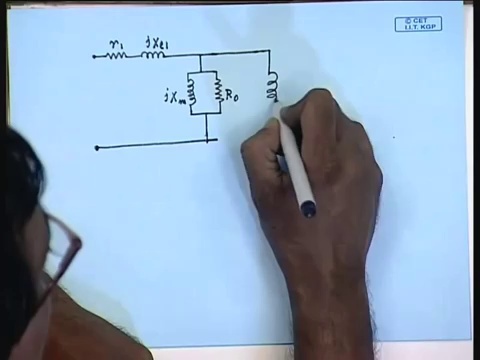 © CET
I.I.T. KGP
r1 jXl1
jXm R0